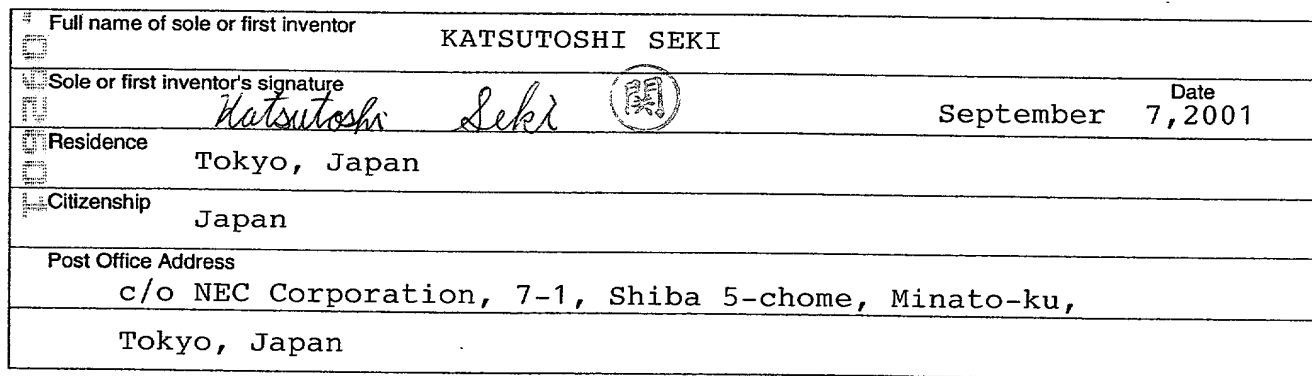 Full name of sole or first inventor
KATSUTOSHI SEKI
Sole or first inventor's signature
Katsutoshi Seki 関
Date
September 7,2001
Residence
Tokyo, Japan
Citizenship
Japan
Post Office Address
c/o NEC Corporation, 7-1, Shiba 5-chome, Minato-ku,
Tokyo, Japan